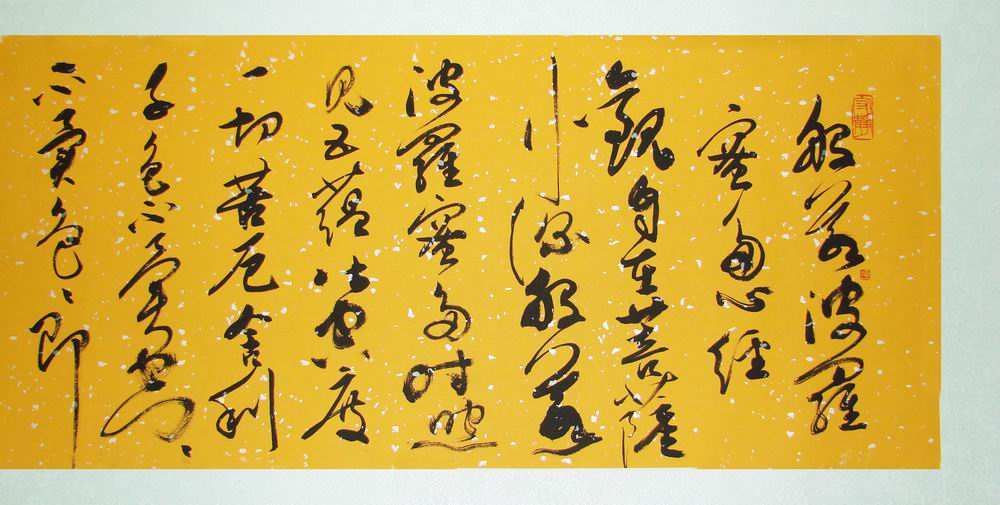 般若波羅
蜜多心經
觀自在菩薩
行深般若
波羅蜜多時照
見五蘊皆空度
一切苦厄舍利
子色不異空〻
不異色〻即